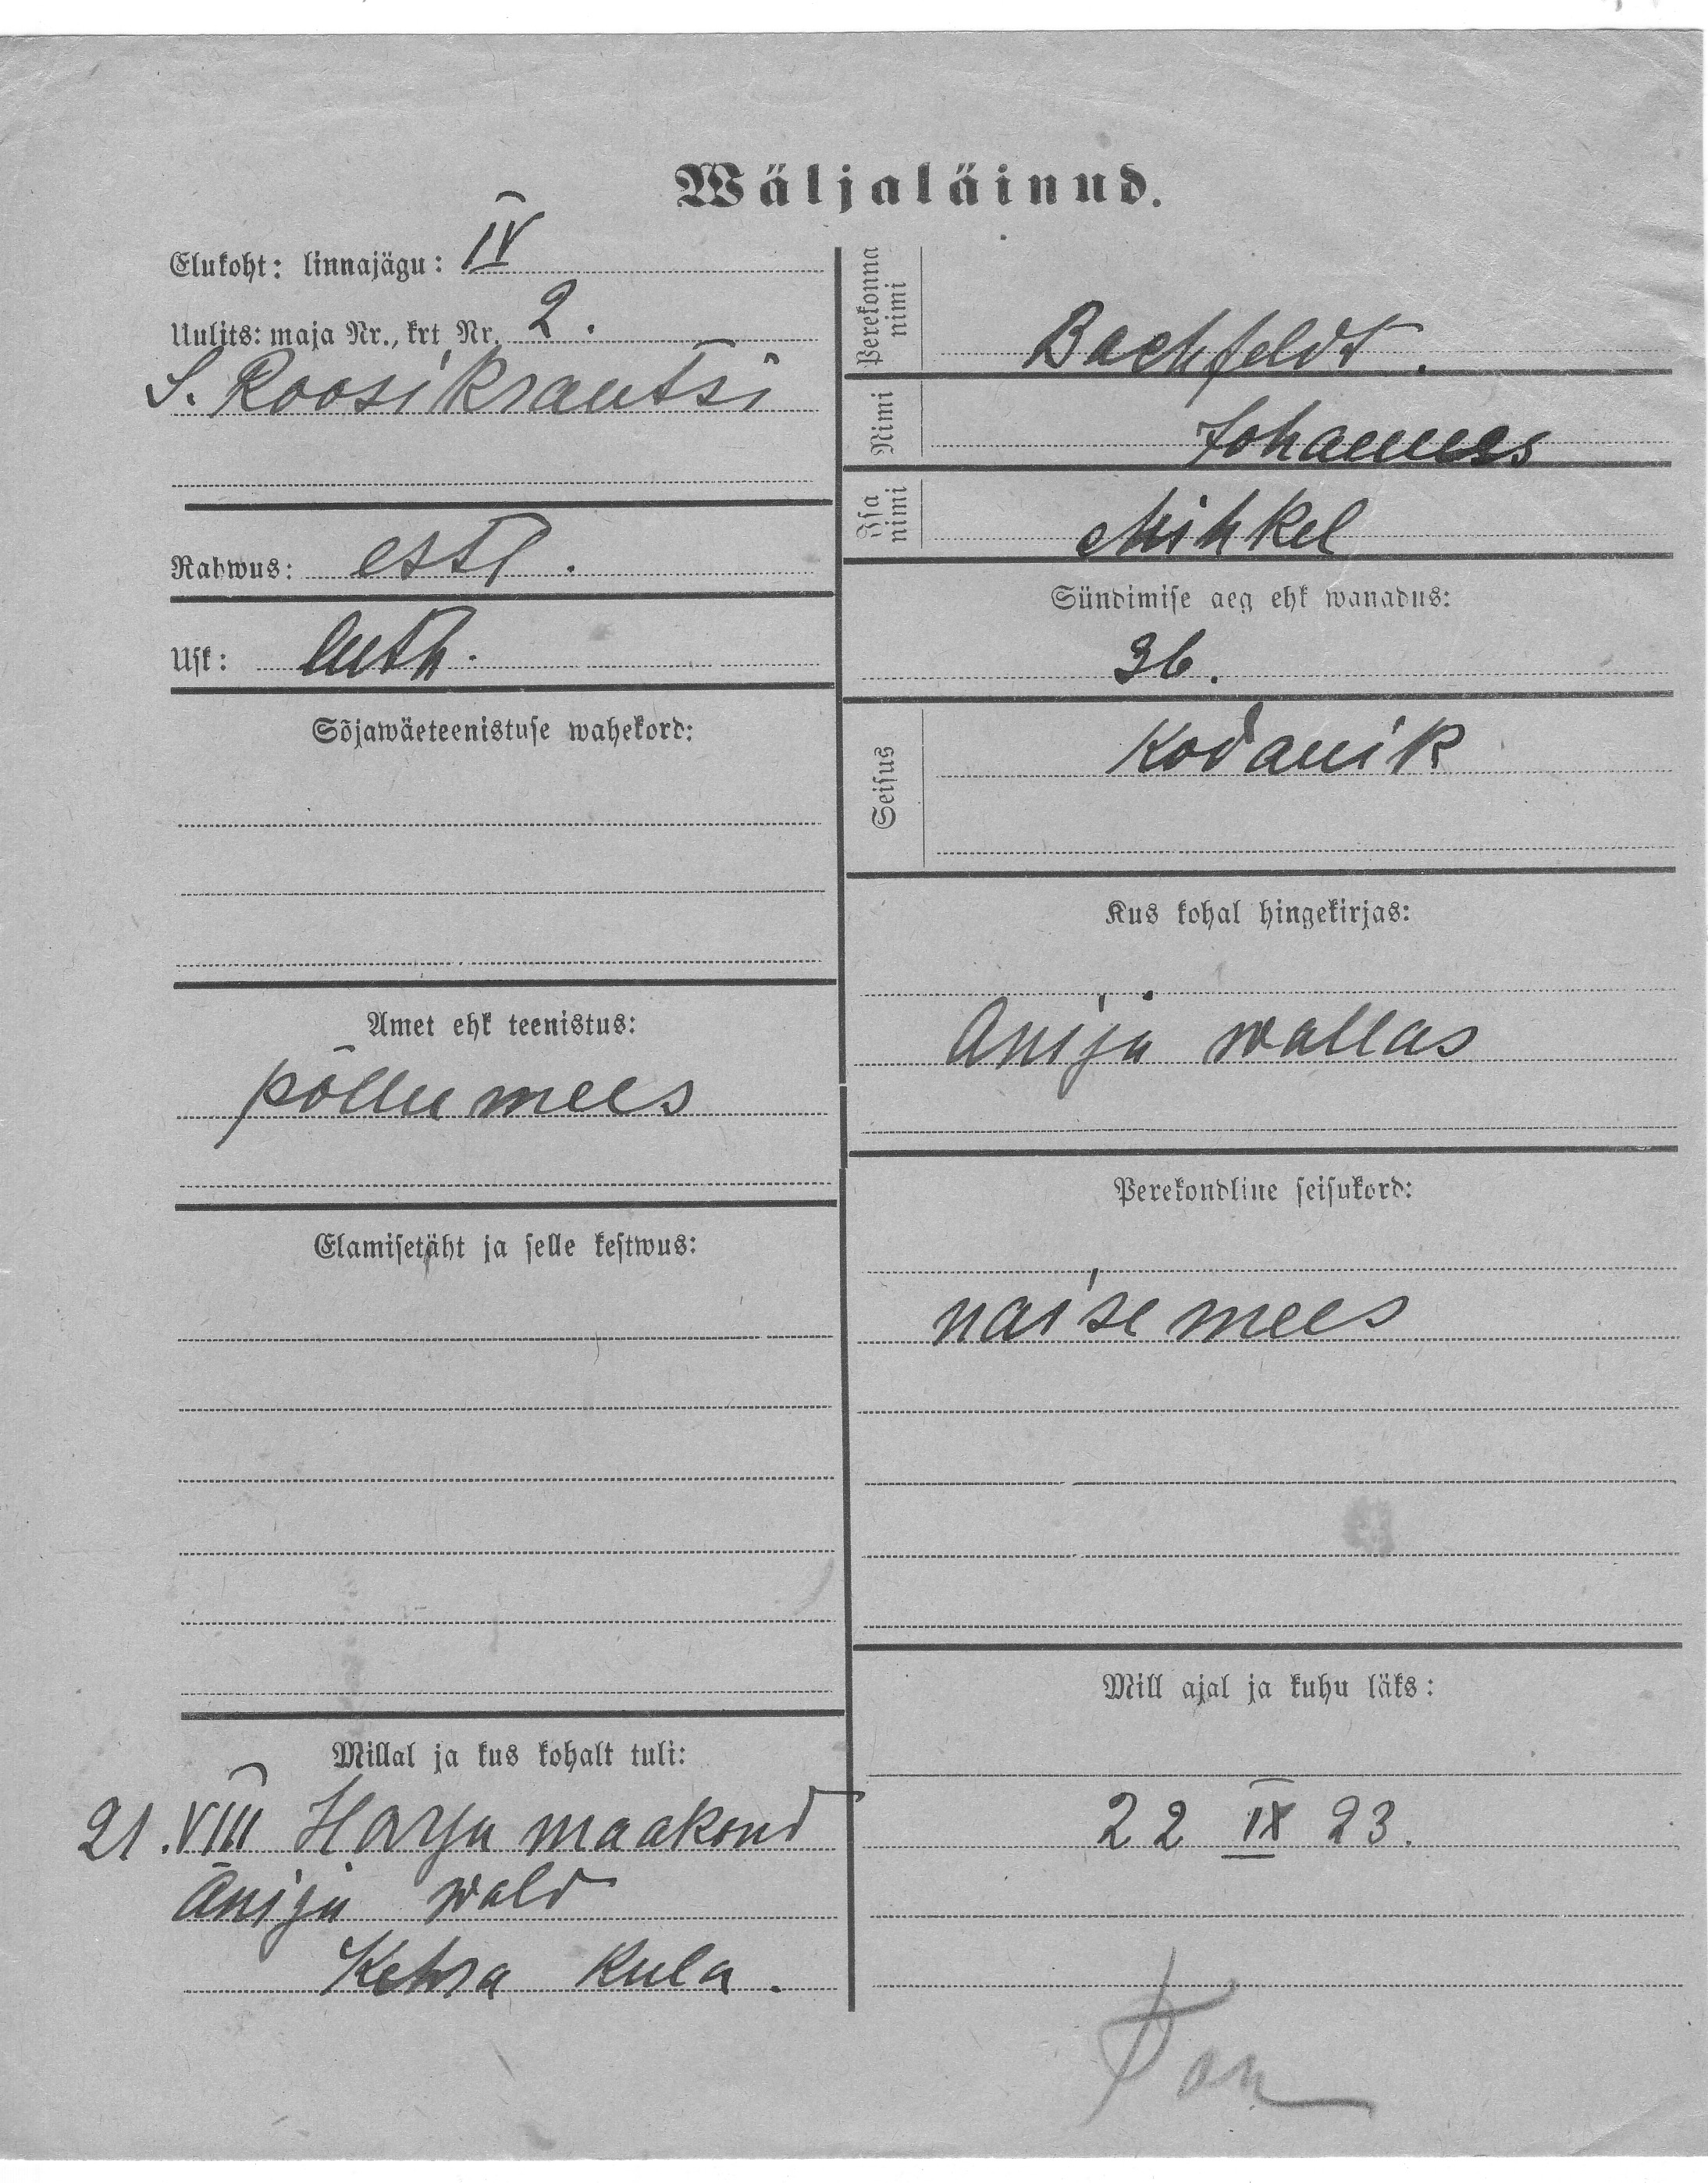 Wäljaläinud.
Elukoht: linnajägu: IV
Uulits: maja Nr., krt Nr. 2.
S. Roosikrantsi
Rahwus: estl.
Usk: luth.
Sõjawäeteenistuse wahekord:
Amet ehk teenistus:
põllumees
Elamisetäht ja selle kestwus:
Millal ja kus kohalt tuli:
21. VIII Harju maakond
Anija wald
Kehra kula.
Perekonna
nimi
Bachfeldt.
Nimi
Johannes
Isa
nimi
Mihkel
Sündimise aeg ehk wanadus:
36.
Seisus
Kodanik
Kus kohal hingekirjas:
Anija wallas
Perekondline seisukord:
naisemees
Mill ajal ja kuhu läks:
22 IX 23.